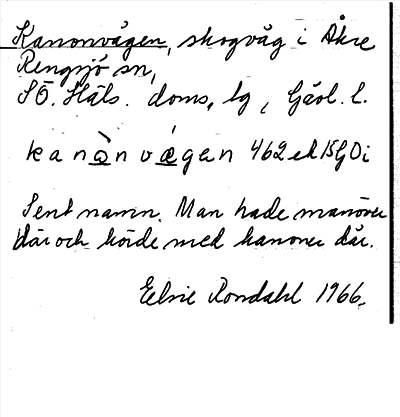 Kanonvägen, skogväg i Åkre
Rengsjö sn,
SÖ. Häls. doms. lg, Gävl. l.
kanòn vǽgen 462 ek 15 G D i
Sent namn. Man hade manöver
där och körde med kanoner där.
Elsie Rondahl 1966.